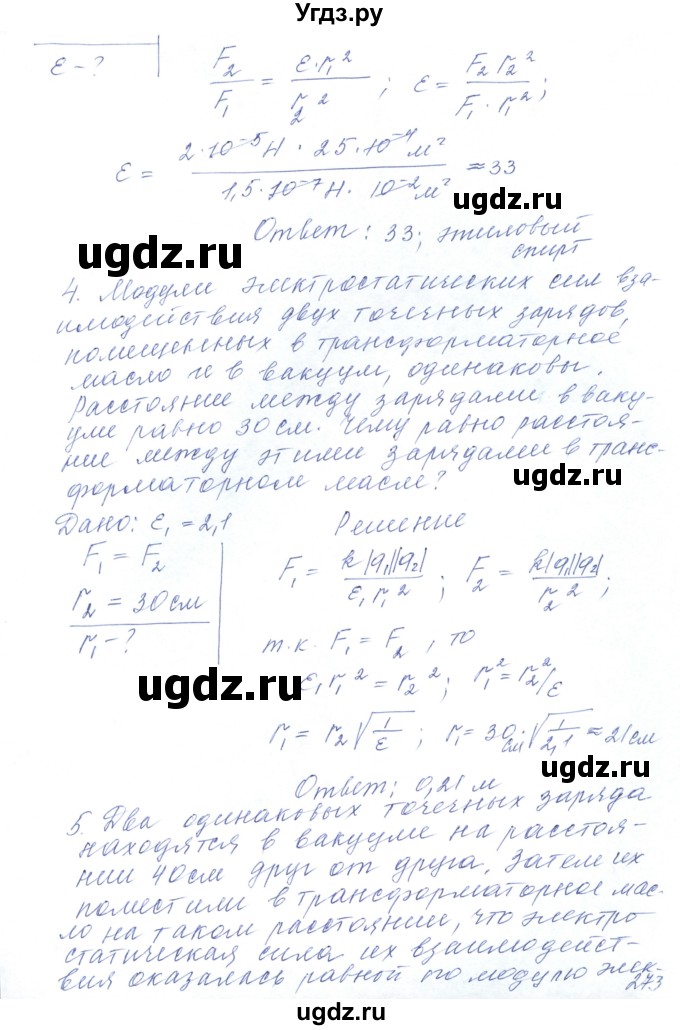 Угдз.ру
ε - ?
F₂/F₁ = ε·r₁²/r₂² ; ε = F₂ r₂²/F₁·r₁² ;
ε = 2·10⁻⁵Н · 25·10⁻⁴м²/1,5·10⁻⁷Н · 10⁻²м² ≈ 33
ugdz.ru
Ответ: 33; этиловый
спирт
ugdz.ru
4. Модули электростатических сил вза-
имодействия двух точечных зарядов,
помещенных в трансформаторное
масло и в вакуум, одинаковы.
Расстояние между зарядами в ваку-
уме равно 30 см. Чему равно расстоя-
ние между этими зарядами в транс-
форматорном масле?
ugdz.ru
Дано: ε₁ = 2,1
Решение
F₁ = F₂
r₂ = 30 см
r₁ - ?
F₁ = k|q₁||q₂|/ε₁r₁² ; F₂ = k|q₁||q₂|/r₂² ;
ugdz.ru
т.к. F₁ = F₂ , то
ugdz.ru
ε₁r₁² = r₂² ; r₁² = r₂²/ε
r₁ = r₂√1/ε ; r₁ = 30 см·√1/2,1 ≈ 21 см
Ответ: 0,21 м
5. Два одинаковых точечных заряда
находятся в вакууме на расстоя-
нии 40 см друг от друга. Затем их
поместили в трансформаторное мас-
ло на таком расстоянии, что электро-
статическая сила их взаимодейст-
вия оказалась равной по модулю элек-
273
ugdz.ru
ugdz.ru
ugdz.ru